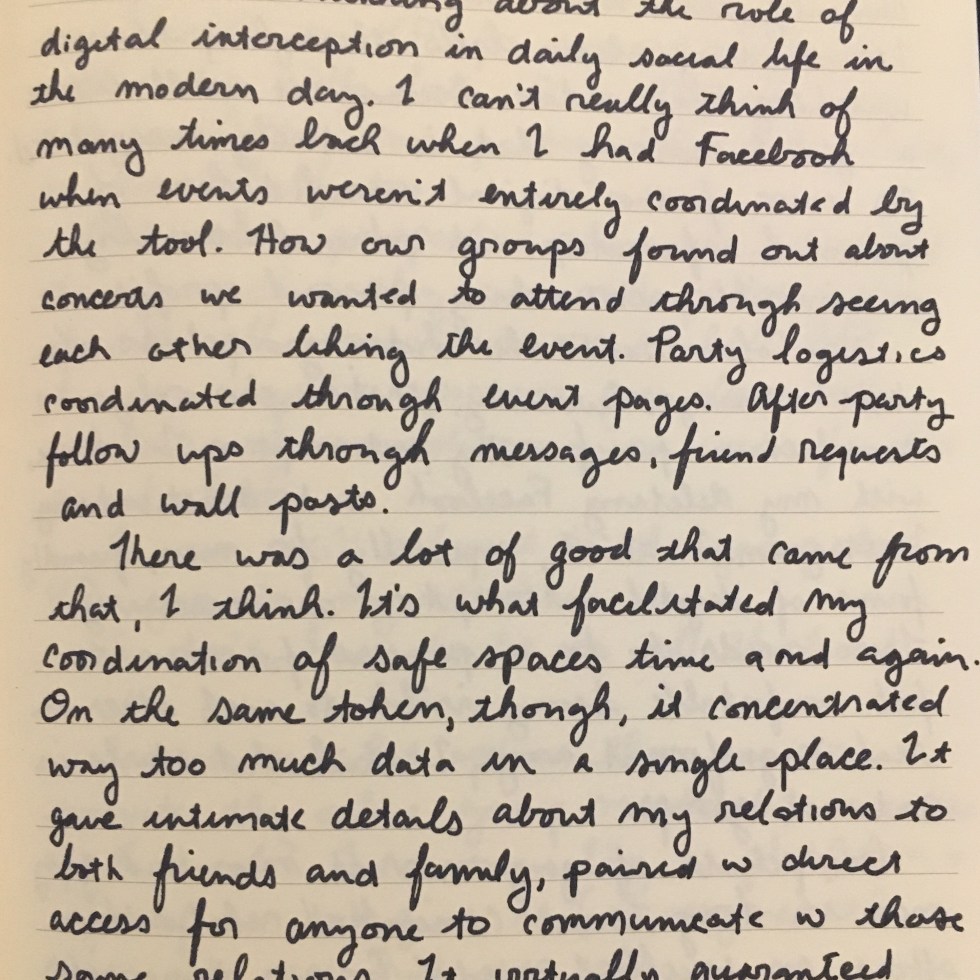 about the role of
digital interception in daily social life in
the modern day. I can't really think of
many times back when I had Facebook
when events weren't entirely coordinated by
the tool. How our groups found out about
concerts we wanted to attend through seeing
each other liking the event. Party logistics
coordinated through event pages. After party
follow ups through messages, friend requests
and wall posts.
There was a lot of good that came from
that, I think. It's what facilitated my
coordination of safe spaces time and again.
On the same token, though, it concentrated
way too much data in a single place. It
gave intimate details about my relations to
both friends and family, paired w direct
access for anyone to communicate w those
same relations. It virtually guaranteed